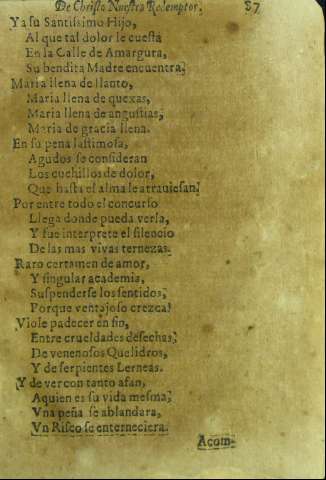 De Christo Nuestro Redemptor. 87
Y a su Santissimo Hijo,
Al que tal dolor le cuesta
En la Calle de Amargura,
Su bendita Madre encuentra;
Maria llena de llanto,
Maria llena de quexas,
Maria llena de angustias,
Maria de gracia llena.
En su pena lastimosa,
Agudos se consideran
Los cuchillos de dolor,
Que hasta el alma le atrauiesan;
Por entre todo el concurso
Llega donde pueda verla,
Y fue interprete el silencio
De las mas vivas ternezas.
Raro certamen de amor,
Y singular academia,
Suspenderse los sentidos,
Porque ventajoso crezca!
Viole padecer en fin,
Entre crueldades desechas;
De venenosos Quelidros,
Y de serpientes Lerneas.
Y de ver con tanto afan,
A quien es su vida mesma;
Vna peña se ablandara,
Vn Risco se enterneciera.
Acom-